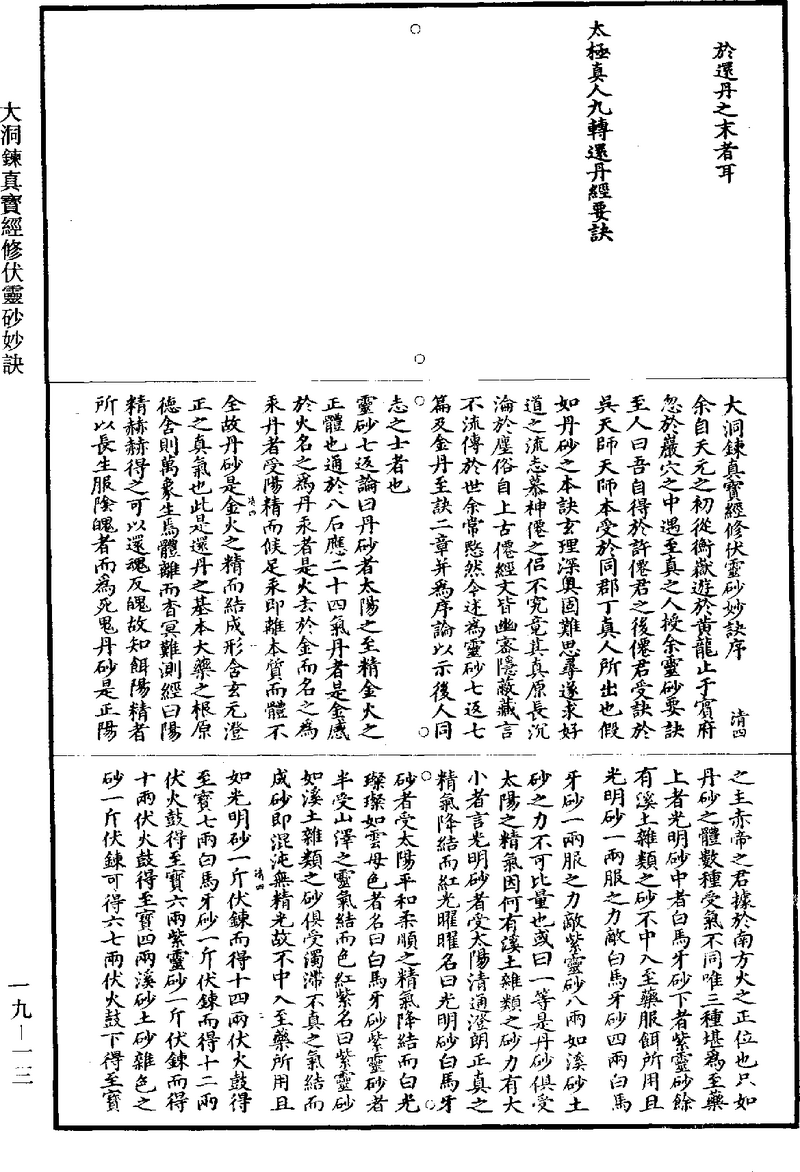 於還丹之末者耳
太極真人九轉還丹經要訣
大洞鍊真寶經修伏靈砂妙訣序
清四
余自天元之初從衡嶽遊於黃龍止于賓府
忽於巖穴之中遇至真之人授余靈砂要訣
至人曰吾自得於許僊君之後僊君受訣於
吳天師天師本受於同郡丁真人所出也假
如丹砂之本訣玄理深奧固難思尋遂求好
道之流志慕神僊之侶不究竟其真原長沉
淪於塵俗自上古僊經文皆幽密隱蔽藏言
不流傳於世余常愍然今述為靈砂七返七
篇及金丹至訣二章并為序論以示後人同
志之士者也
靈砂七返論曰丹砂者太陽之至精金火之
正體也通於八石應二十四氣丹者是金感
於火名之為丹汞者是火去於金而名之為
汞丹者受陽精而候足汞即離本質而體不
全故丹砂是金火之精而結成形含玄元澄
正之真氣也此是還丹之基本大藥之根原
德含則萬象生焉體離而杳冥難測經曰陽
精赫赫得之可以還魂反魄故知餌陽精者
所以長生服陰魄者而為死鬼丹砂是正陽
清四
之主赤帝之君據於南方火之正位也只如
丹砂之體數種受氣不同唯三種堪為至藥
上者光明砂中者白馬牙砂下者紫靈砂餘
有溪土雜類之砂不中入至藥服餌所用且
光明砂一兩服之力敵白馬牙砂四兩白馬
牙砂一兩服之力敵紫靈砂八兩如溪砂土
砂之力不可比量也或曰一等是丹砂俱受
太陽之精氣因何有溪土雜類之砂力有大
小者言光明砂者受太陽清通澄朗正真之
精氣降結而紅光曜曜名曰光明砂白馬牙
砂者受太陽平和柔順之精氣降結而白光
璨璨如雲母色者名曰白馬牙砂紫靈砂者
半受山澤之靈氣結而色紅紫名曰紫靈砂
如溪土雜類之砂俱受濁滯不真之氣結而
成砂即混沌無精光故不中入至藥所用且
如光明砂一斤伏鍊而得十四兩伏火鼓得
至寶七兩白馬牙砂一斤伏鍊而得十二兩
伏火鼓得至寶六兩紫靈砂一斤伏鍊而得
十兩伏火鼓得至寶四兩溪砂土砂雜色之
砂一斤伏鍊可得六七兩伏火鼓下得至寶
清四
大洞鍊真寶經修伏靈砂妙訣
一九—一三